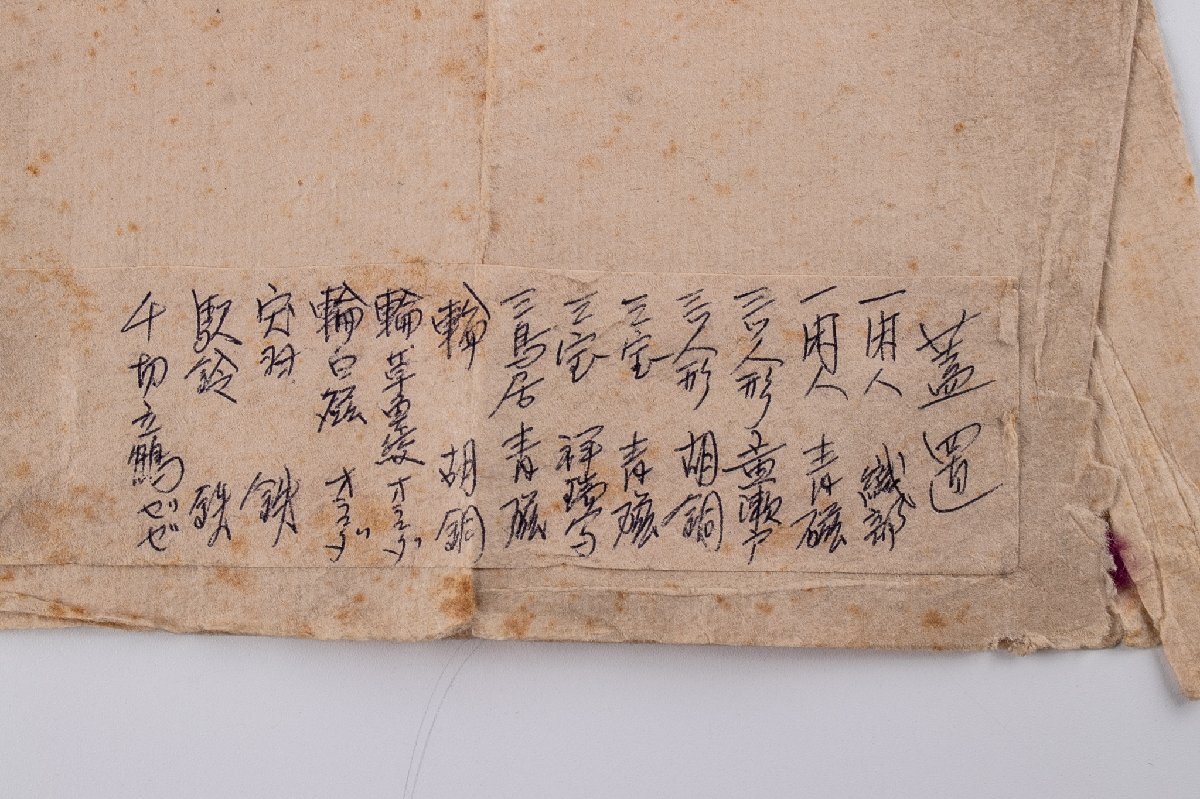 蓋置
一閑人 織部
一閑人 青磁
三人形 黄瀬戸
三人形 胡銅
三宝 青磁
三宝 祥瑞写
三鳥居 青磁
輪 胡銅
輪 草花紋 オランダ
輪 白磁 オランダ
鉄
駅鈴 鉄
千切立鶴 ゼゼ